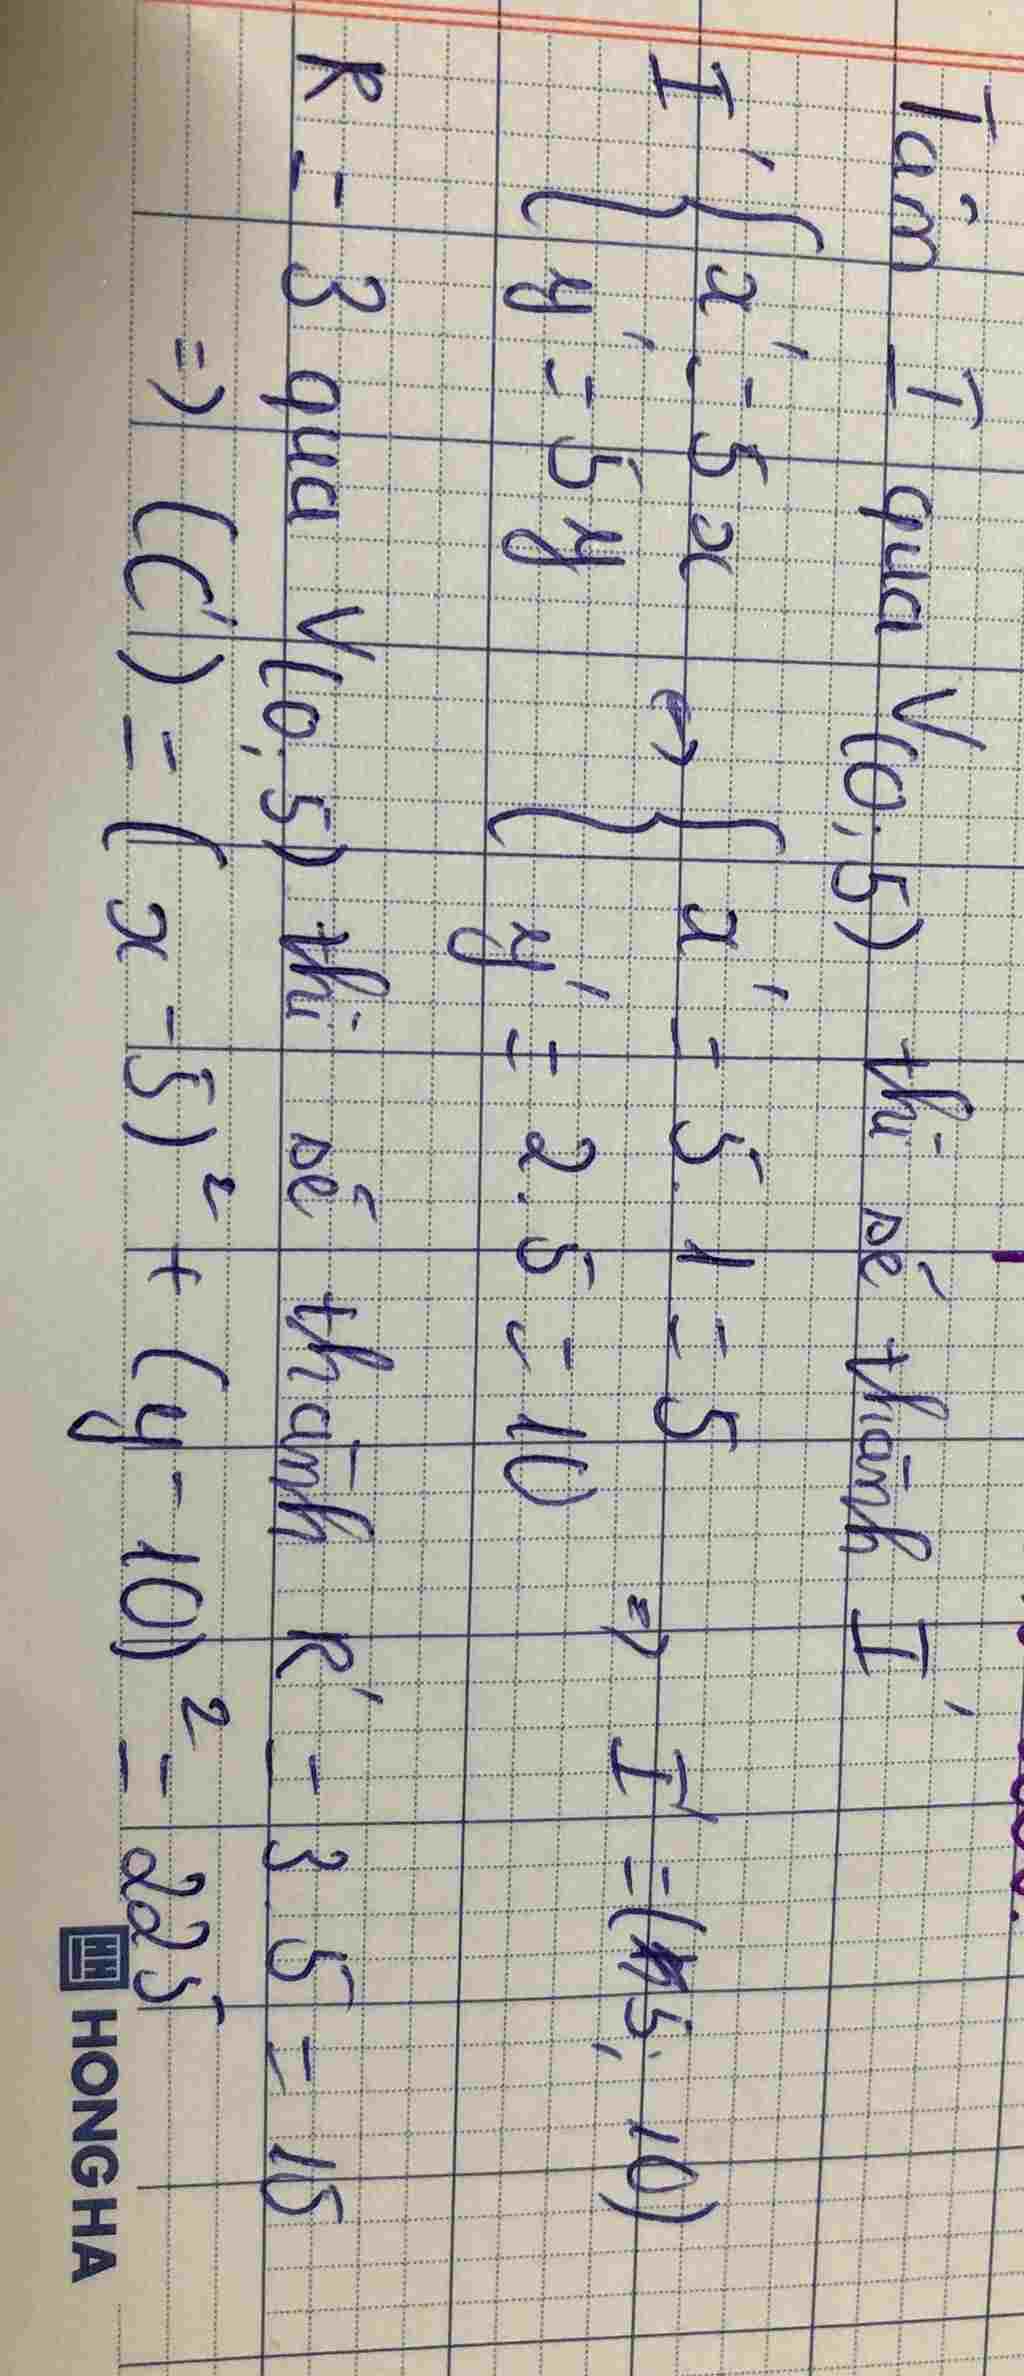 Tâm I qua V(0; 5) thì sẽ thành I'
I' { x' = 5x ⇔ { x' = 5.1 = 5 ⇒ I' = (5; 10)
y' = 5y { y' = 2.5 = 10
R = 3 qua V(0; 5) thì sẽ thành R' = 3.5 = 15
=> (C') = (x - 5)² + (y - 10)² = 225
HONG HA